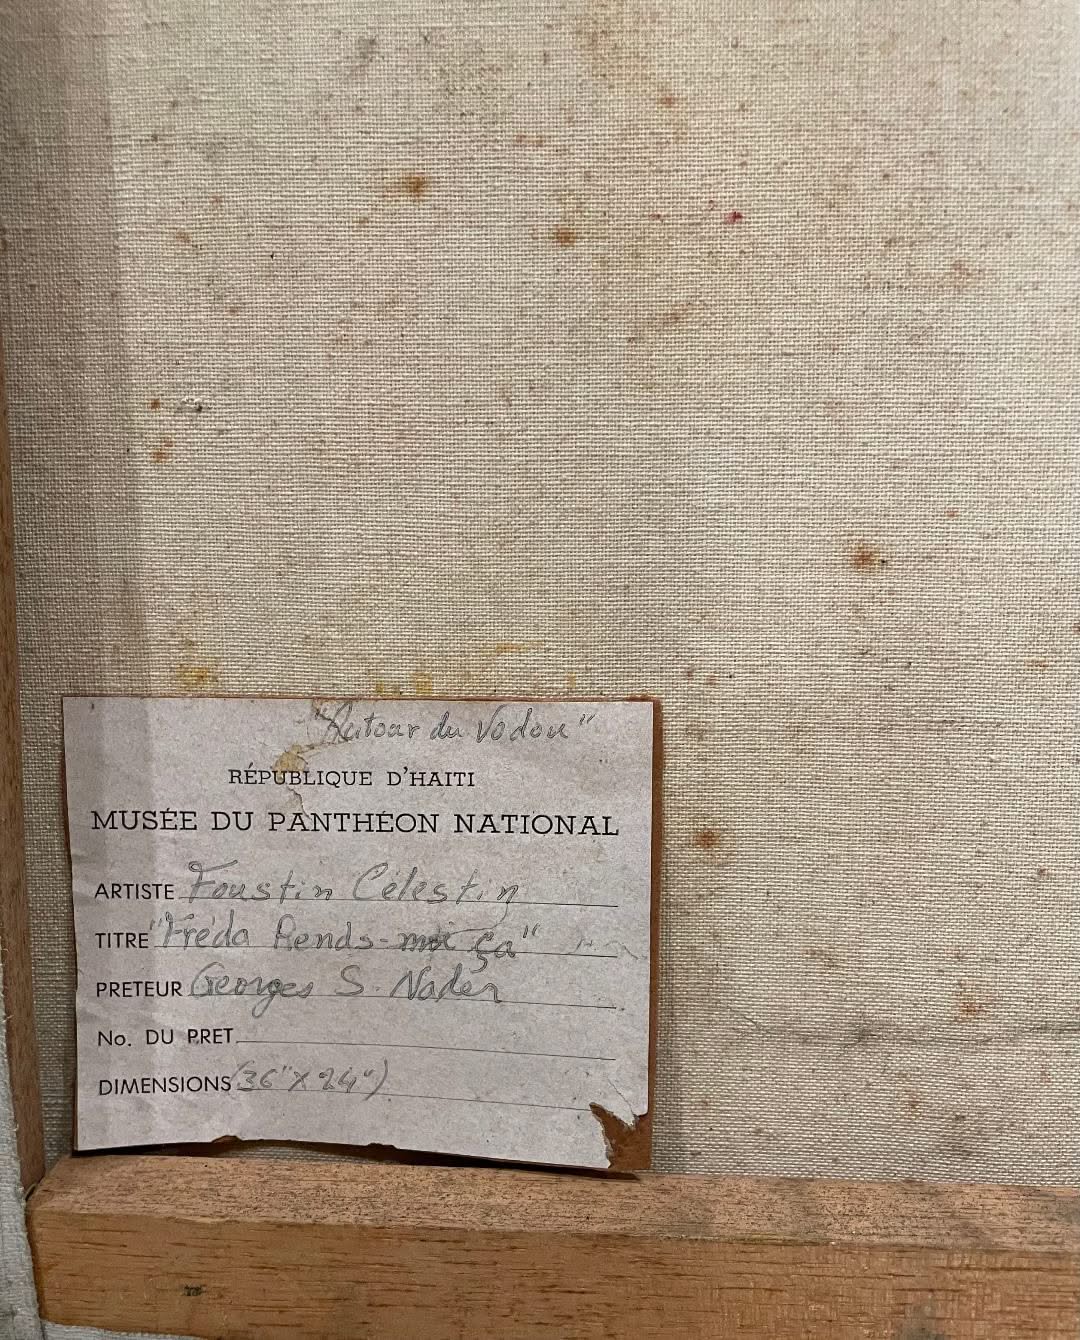 "Autour du Vodou"
RÉPUBLIQUE D'HAITI
MUSÉE DU PANTHÉON NATIONAL
ARTISTE Foustin Célestin
TITRE "Fréda Rends-moi ça"
PRETEUR Georges S. Nader
No. DU PRET
DIMENSIONS (36" X 24")